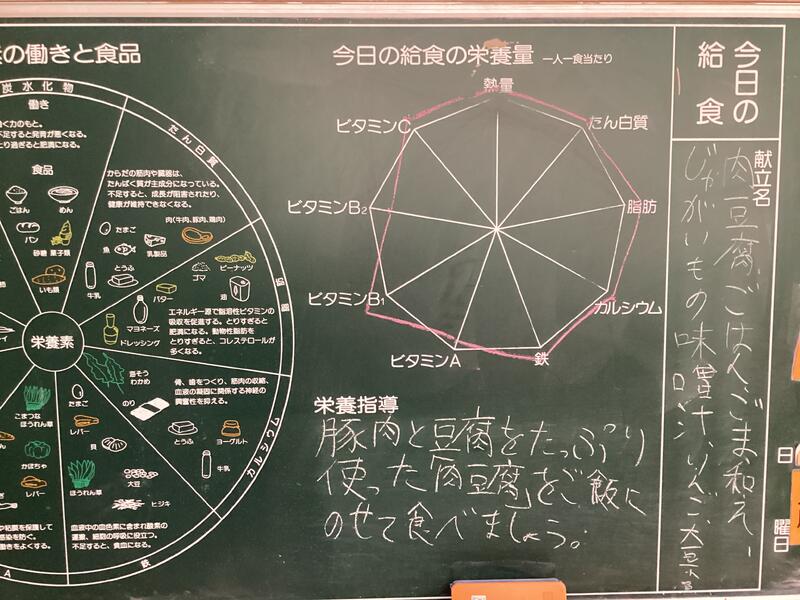 素の働きと食品
炭水化物
働き
食品
ごはん
めん
パン
砂糖 菓子類
いも類
たん白質
からだの筋肉や臓器は、
たんぱく質が主成分になっている。
不足すると、成長が阻害されたり、
健康が維持できなくなる。
肉(牛肉、豚肉、鶏肉)
たまご
魚
乳製品
牛乳
とうふ
ゴマ
ピーナッツ
バター
油
マヨネーズ
ドレッシング
エネルギー源で脂溶性ビタミンの
吸収を促進する。とりすぎると
肥満になる。動物性脂肪を
とりすぎると、コレステロールが
多くなる。
脂肪
栄養素
骨、歯をつくり、筋肉の収縮、
血液の凝固に関係する神経の
興奮性を抑える。
わかめ
のり
とうふ
ヨーグルト
牛乳
カルシウム
こまつな
ほうれん草
かぼちゃ
レバー
たまご
レバー
貝
ほうれん草
大豆
ヒジキ
血液中の血色素に含まれ酸素の
運搬、細胞の呼吸に役立つ。
不足すると、貧血になる。
鉄
A
今日の給食の栄養量 一人一食当たり
熱量
たん白質
脂肪
カルシウム
鉄
ビタミンA
ビタミンB1
ビタミンB2
ビタミンC
栄養指導
豚肉と豆腐をたっぷり
使った「肉豆腐」をご飯に
のせて食べましょう。
今日の
給食
献立名
肉豆腐、ごはん、ごま和え、
じゃがいもの味噌汁、りんご、大豆小魚
日
曜日